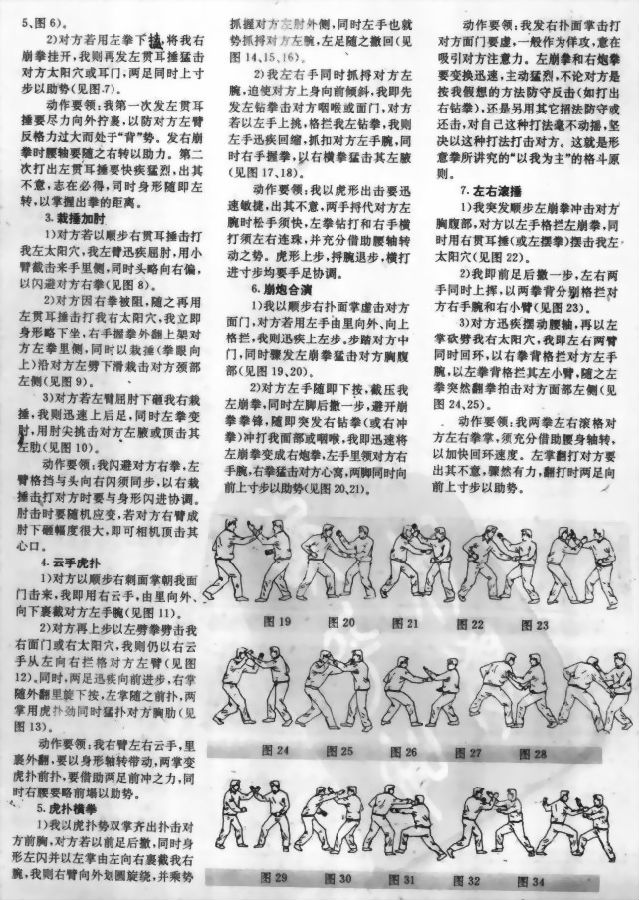 5、图6)。
2)对方若用左拳下搕,将我右
崩拳挂开,我则再发左贯耳捶猛击
对方太阳穴或耳门,两足同时上寸
步以助势(见图7)。
动作要领:我第一次发左贯耳
捶要尽力向外拧裹,以防对方左臂
反格力过大而处于“背”势。发右崩
拳时腰轴要随之右转以助力。第二
次打出左贯耳捶要快疾猛烈,出其
不意,志在必得,同时身形随即左
转,以掌握出拳的距离。
3.栽捶加肘
1)对方若以顺步右贯耳捶击打
我左太阳穴,我左臂迅疾屈肘,用小
臂截击来手里侧,同时头略向右偏,
以闪避对方右拳(见图8)。
2)对方因右拳被阻,随之再用
左贯耳捶击打我右太阳穴,我立即
身形略下坐,右手握拳外翻上架对
方左拳里侧,同时以栽捶(拳眼向
上)沿对方左劈下滑栽击对方颈部
左侧(见图9)。
3)对方若左臂屈肘下砸我右栽
捶,我则迅速上后足,同时左拳变
肘,用肘尖挑击对方左腋或顶击其
左肋(见图10)。
动作要领:我闪避对方右拳,左
臂格挡与头向右闪须同步,以右栽
捶击打对方时要与身形闪进协调。
肘击时要随机应变,若对方右臂成
肘下砸幅度很大,即可相机顶击其
心口。
4.云手虎扑
1)对方以顺步右刺面掌朝我面
门击来,我即用右云手,由里向外、
向下裹截对方左手腕(见图11)。
2)对方再上步以左劈拳劈击我
右面门或右太阳穴,我则仍以右云
手从左向右拦格对方左臂(见图
12)。同时,两足迅疾向前进步,右掌
随外翻里旋下按,左掌随之前扑,两
掌用虎扑劲同时猛扑对方胸肋(见
图13)。
动作要领:我右臂左右云手,里
裹外翻,要以身形轴转带动,两掌变
虎扑前扑,要借助两足前冲之力,同
时右腰要略前塌以助势。
5.虎扑横拳
1)我以虎扑势双掌齐出扑击对
方前胸,对方若以前足后撤,同时身
形左闪并以左掌由左向右裹截我右
腕,我则右臂向外划圆旋绕,并乘势
抓握对方左肘外侧,同时左手也就
势抓捋对方左腕,左足随之撤回(见
图14、15、16)。
2)我左右手同时抓捋对方左
腕,迫使对方上身向前倾斜,我即先
发左钻拳击对方咽喉或面门,对方
若以左手上挑,格拦我左钻拳,我则
左手迅疾回缩,抓扣对方左手腕,同
时右手握拳,以右横拳猛击其左腋
(见图17、18)。
动作要领:我以虎形出击要迅
速敏捷,出其不意,两手捋代对方左
腕时松手须快,左拳钻打和右手横
打须左右连珠,并充分借助腰轴转
动之势。虎形上步,捋腕退步,横打
进寸步均要手足协调。
6.崩炮合演
1)我以顺步右扑面掌虚击对方
面门,对方若用左手由里向外、向上
格拦,我则迅疾上左步。步踏对方中
门,同时骤发左崩拳猛击对方胸腹
部(见图19、20)。
2)对方左手随即下按,截压我
左崩拳,同时左脚后撤一步,避开崩
拳拳锋,随即突发右钻拳(或右冲
拳)冲打我面部或咽喉,我即迅速将
左崩拳变成右炮拳,左手里领对方右
手腕,右拳猛击对方心窝,两脚同时向
前上寸步以助势(见图20、21)。
动作要领:我发右扑面掌击打
对方面门要虚,一般作为佯攻,意在
吸引对方注意力。左崩拳和右炮拳
要变换迅速,主动猛烈,不论对方是
按我假想的方法防守反击(如打出
右钻拳),还是另用其它招法防守或
还击,对自己这种打法毫不动摇,坚
决以这种打法打击对方、这就是形
意拳所讲究的“以我为主”的格斗原
则。
7.左右滚捶
1)我突发顺步左崩拳冲击对方
胸腹部,对方以左手格拦左崩拳,同
时用右贯耳捶(或左摆拳)摆击我左
太阳穴(见图22)。
2)我即前足后撤一步,左右两
手同时上挥,以两拳背分别格拦对
方右手腕和右小臂(见图23)。
3)对方迅疾摆动腰轴,再以左
掌砍劈我右太阳穴,我即左右两臂
同时回环,以右拳背格拦对方左手
腕,以左拳背格拦其左小臂,随之左
拳突然翻拳拍击对方面部左侧(见
图24、25)。
动作要领:我两拳左右滚格对
方左右拳掌,须充分借助腰身轴转,
以加快回环速度。左掌翻打对方要
出其不意,骤然有力,翻打时两足向
前上寸步以助势。
图19 图20 图21 图22 图23
图24 图25 图26 图27 图28
图29 图30 图31 图32 图34